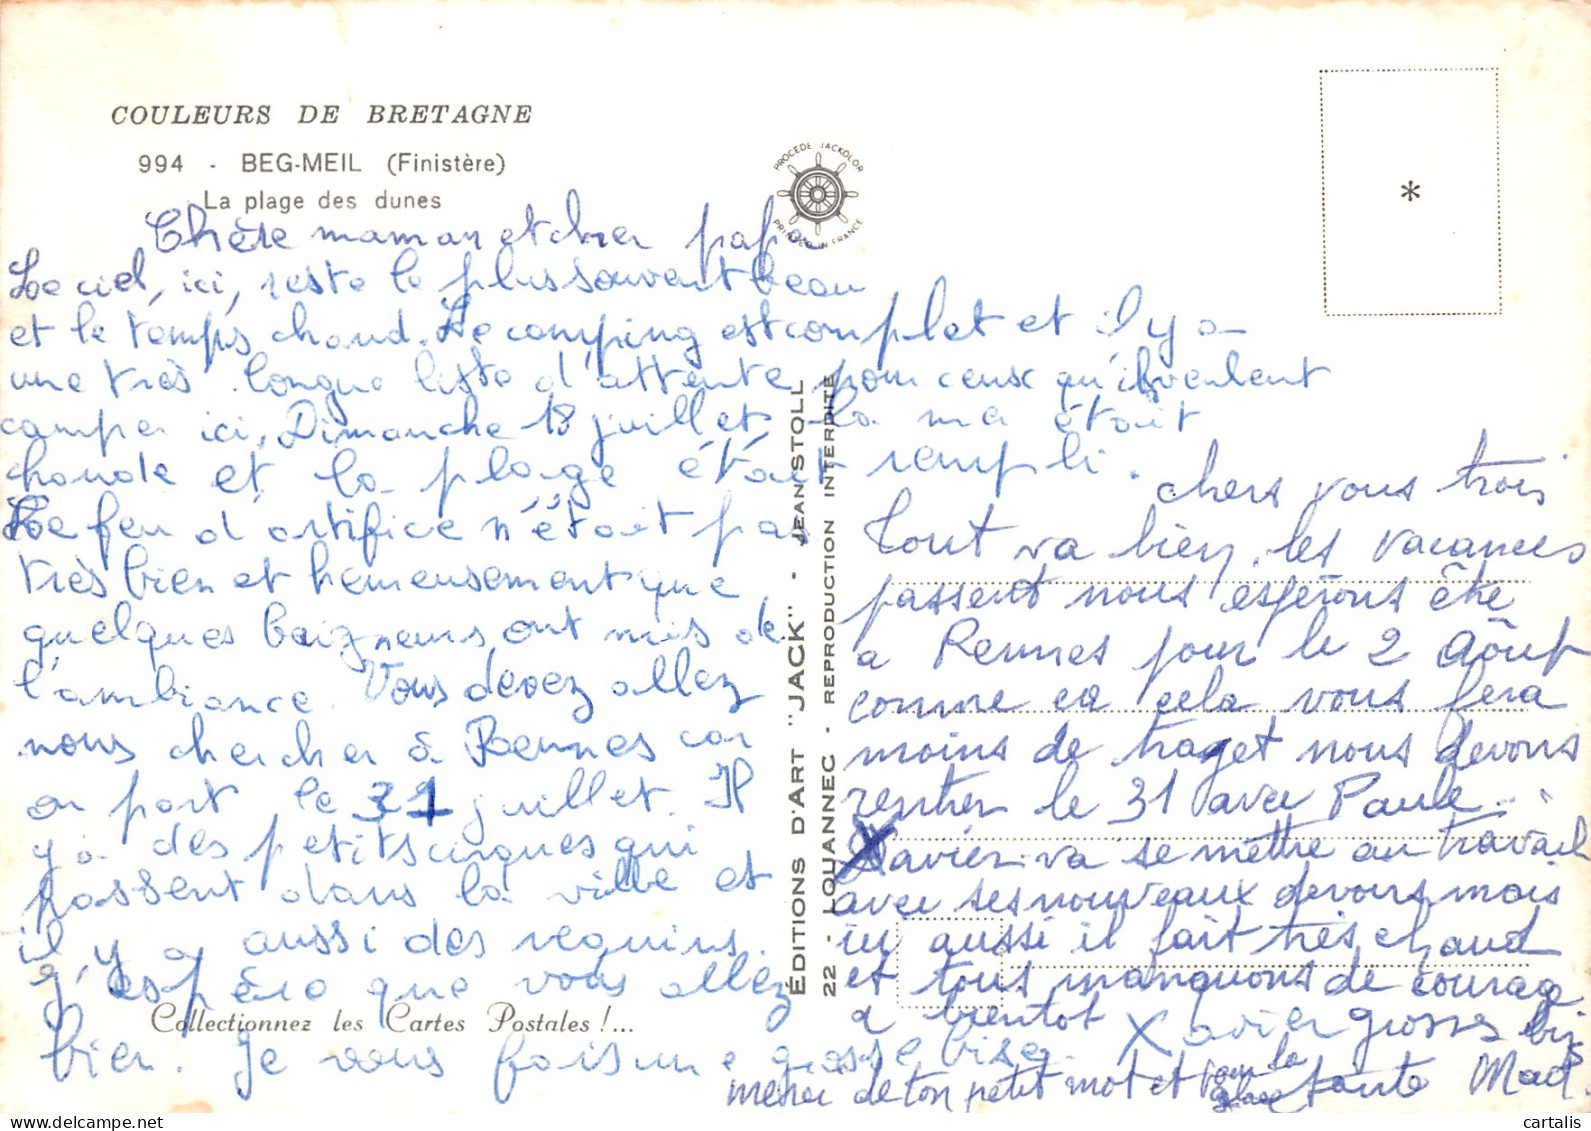 COULEURS DE BRETAGNE
994 - BEG-MEIL (Finistère)
La plage des dunes
PROCEDE JACKOLOR
PRINTED IN FRANCE
*
Chère maman et cher papa
Le ciel, ici, reste le plus souvent beau
et le temps chaud. Le camping est complet et il y a
une très longue liste d'attente pour ceux qu'ils veulent
camper ici. Dimanche 18 juillet, la mer était
chaude et la plage était rempli.
Le feu d'artifice n'était pas
très bien et heureusement que
quelques baigneurs ont mis de
l'ambiance. Vous devez allez
nous chercher à Rennes car
on part le 31 juillet. Il
y a des petits cirques qui
passent dans la ville et
il y a aussi des requins.
J'espère que vous allez
bien. Je vous fais une grosse bise.
Xavier
ÉDITIONS D'ART "JACK" - JEAN STOLL
22 - LOUANNEC - REPRODUCTION INTERDITE
Collectionnez les Cartes Postales !...
chers vous trois
Tout va bien, les vacances
passent nous espérons être
a Rennes pour le 2 Août
comme ça cela vous fera
moins de traget nous devons
rentrer le 31 avec Paule.
Xavier va se mettre au travail
avec ses nouveaux devoirs mais
ici aussi il fait très chaud
et tous manquons de courage
a bientot grosses bis
merci de ton petit mot et pour la
glace tante Mad.
cartalis